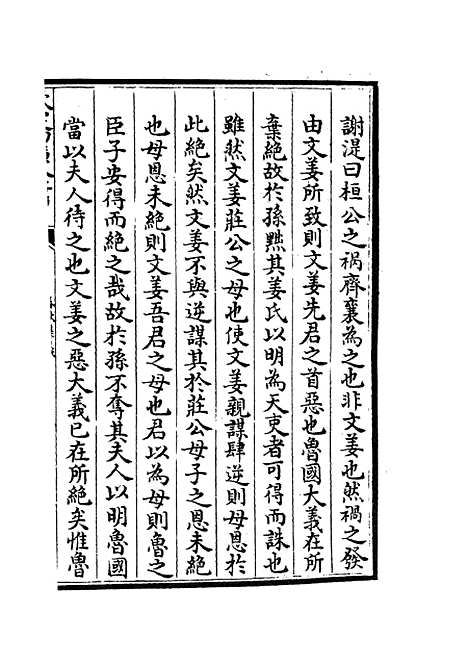 謝湜曰桓公之禍齊襄為之也非文姜也然禍之發
由文姜所致則文姜先君之首惡也魯國大義在所
棄絶故於孫黜其姜氏以明為天吏者可得而誅也
雖然文姜莊公之母也使文姜親謀肆逆則母恩於
此絶矣然文姜不與逆謀其於莊公母子之恩未絶
也母恩未絶則文姜吾君之母也君以為母則魯之
臣子安得而絶之哉故於孫不奪其夫人以明魯國
當以夫人待之也文姜之惡大義已在所絶矣惟魯